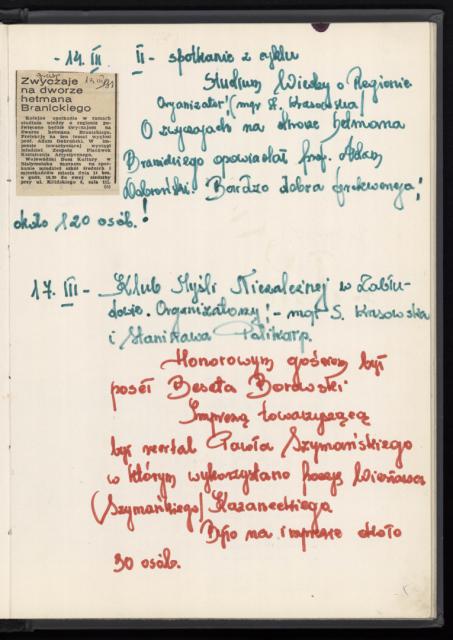 - 14. III
II - spotkanie z cyklu
Studium Wiedzy o Regionie
Organizator! (mgr S. Krasowska
O zwyczajach na dworze hetmana
Branickiego opowiadał prof. Adam
Dobroński. Bardzo dobra frekwencja!
około 120 osób.!
Zwyczaje
na dworze
hetmana
Branickiego
Kolejne spotkanie w ramach
studium wiedzy o regionie po-
święcone będzie zwyczajom na
dworze hetmana Branickiego.
Prelekcję na ten temat wygłosi
prof. Adam Dobroński. W im-
prezie towarzyszącej wystąpi
młodzież Zespołu Placówek
Kształcenia Artystycznego.
Wojewódzki Dom Kultury w
Białymstoku zaprasza na spot-
kanie młodzież szkół średnich i
mieszkańców miasta dnia 14 bm.
o godz. 16.30 do swej siedziby
przy ul. Kilińskiego 8, sala 111.
17. III - Klub Myśli Niezależnej w Zabłu-
dowie. Organizatorzy! - mgr S. Krasowska
i Stanisława Polikarp.
Honorowym gościem był
poseł Beseta Borowski
Imprezą towarzyszącą
był recital Pawła Szymańskiego
w którym wykorzystano poezję Wieńawa
(Szymańkiego) Kazaneckiego
Było na imprezie około
30 osób.